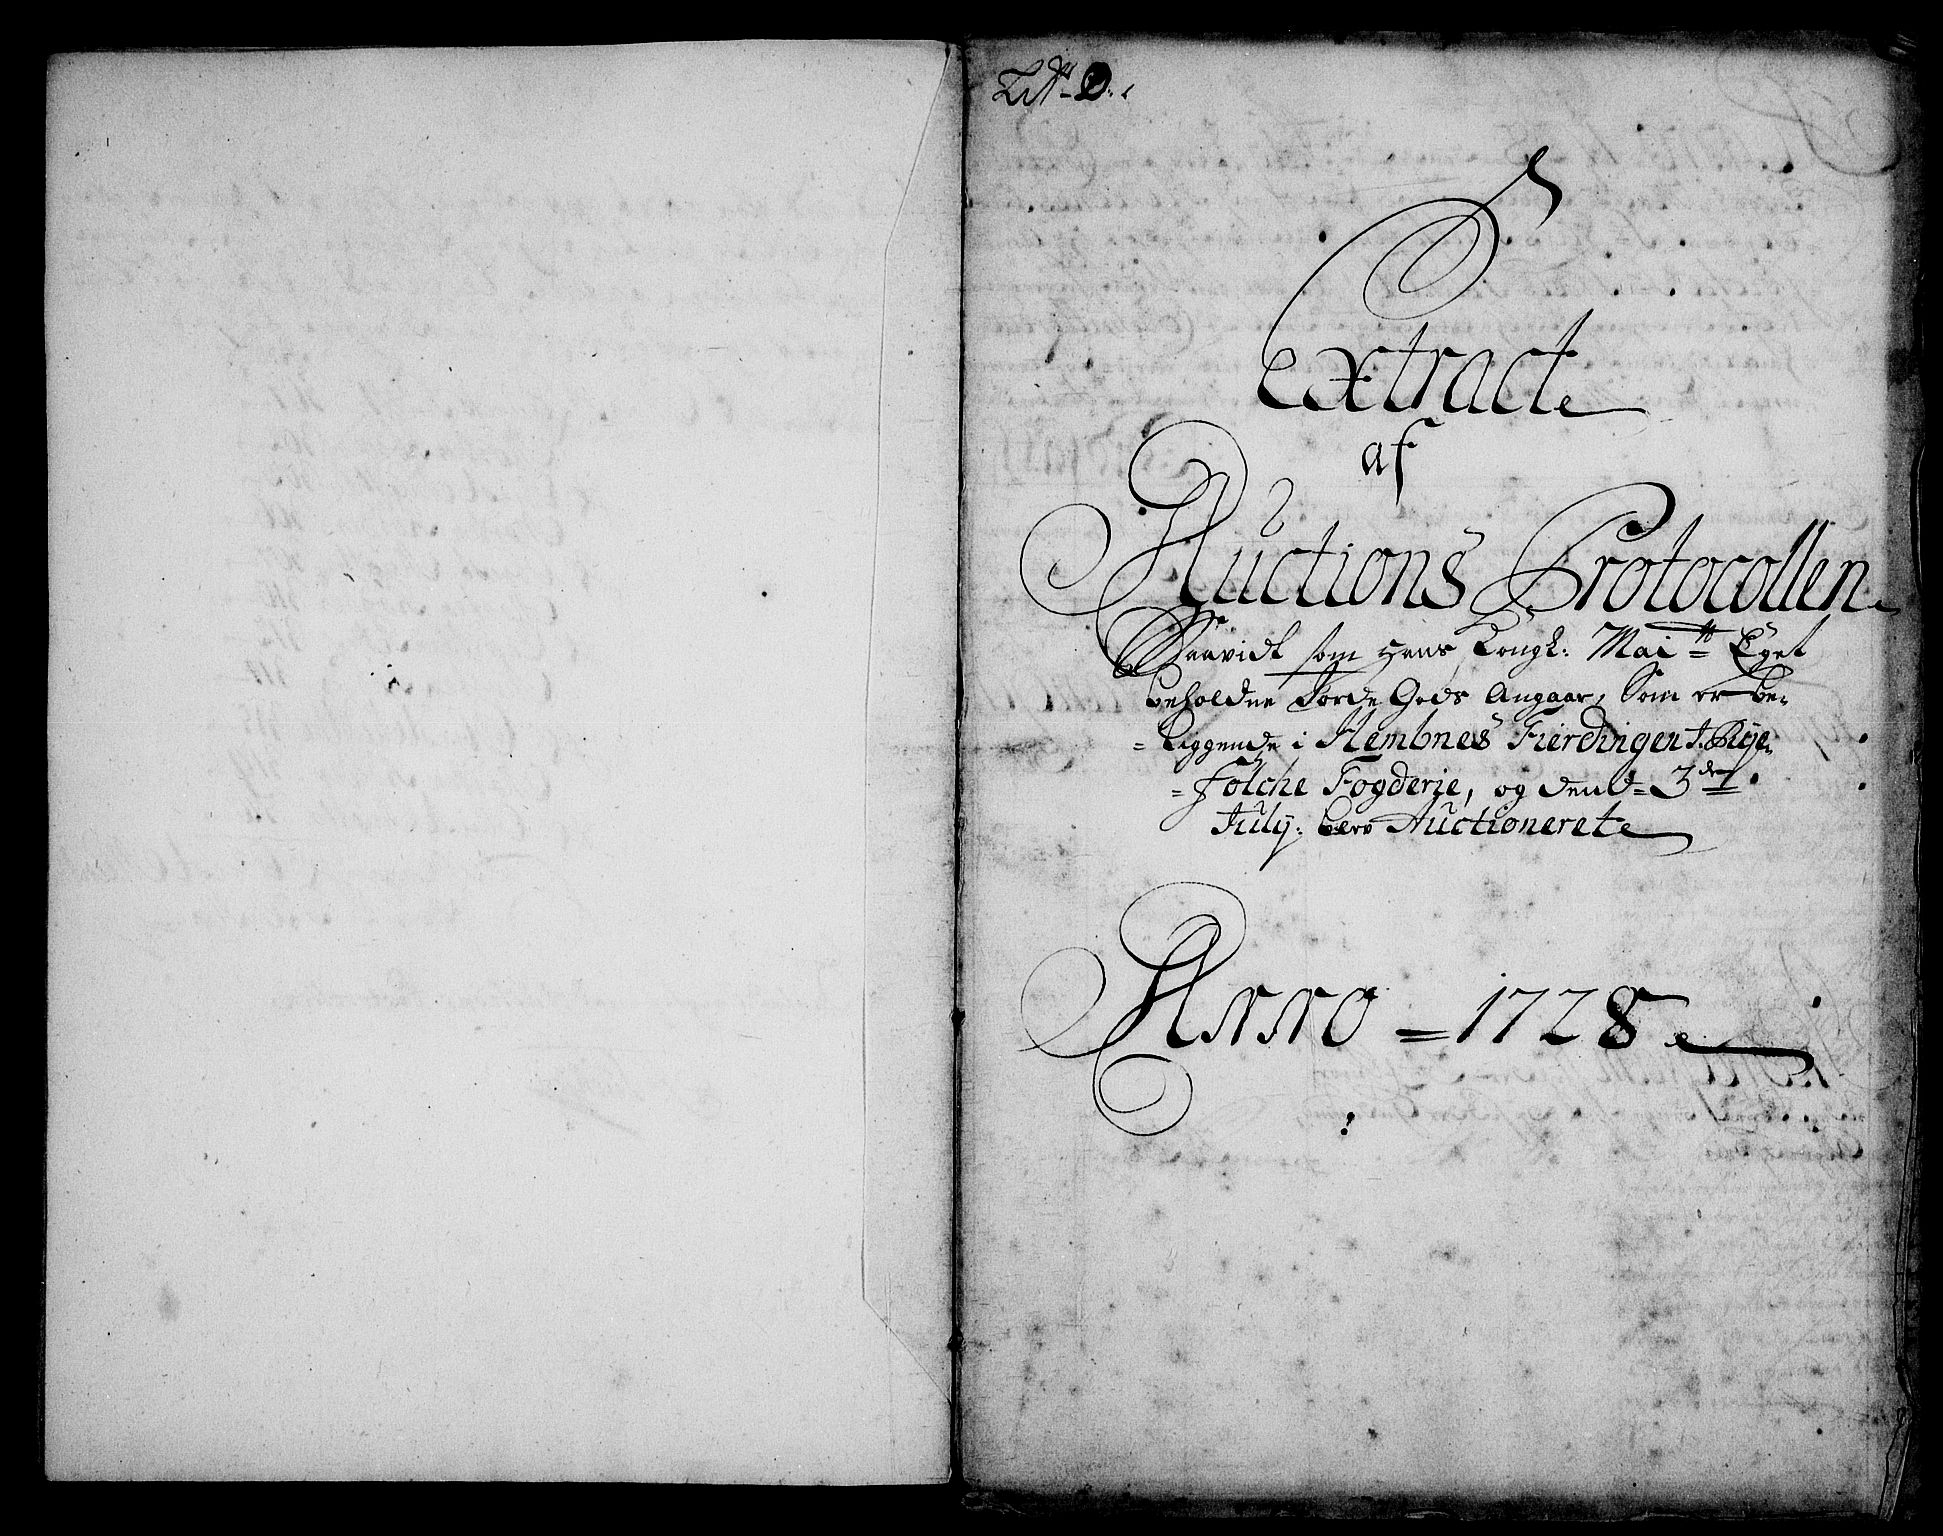 Litr. D.
Extract
af
Auctions Protocollen
Saavidt som Hans Kongl: Maitt Eget
beholdne Jorde Gods Angaar, Som er be-
= liggende i Hembnes Fierdingen J. Rye-
= folche Fogderie, og dend 3de
July: blev Auctioneret
Anno = 1728